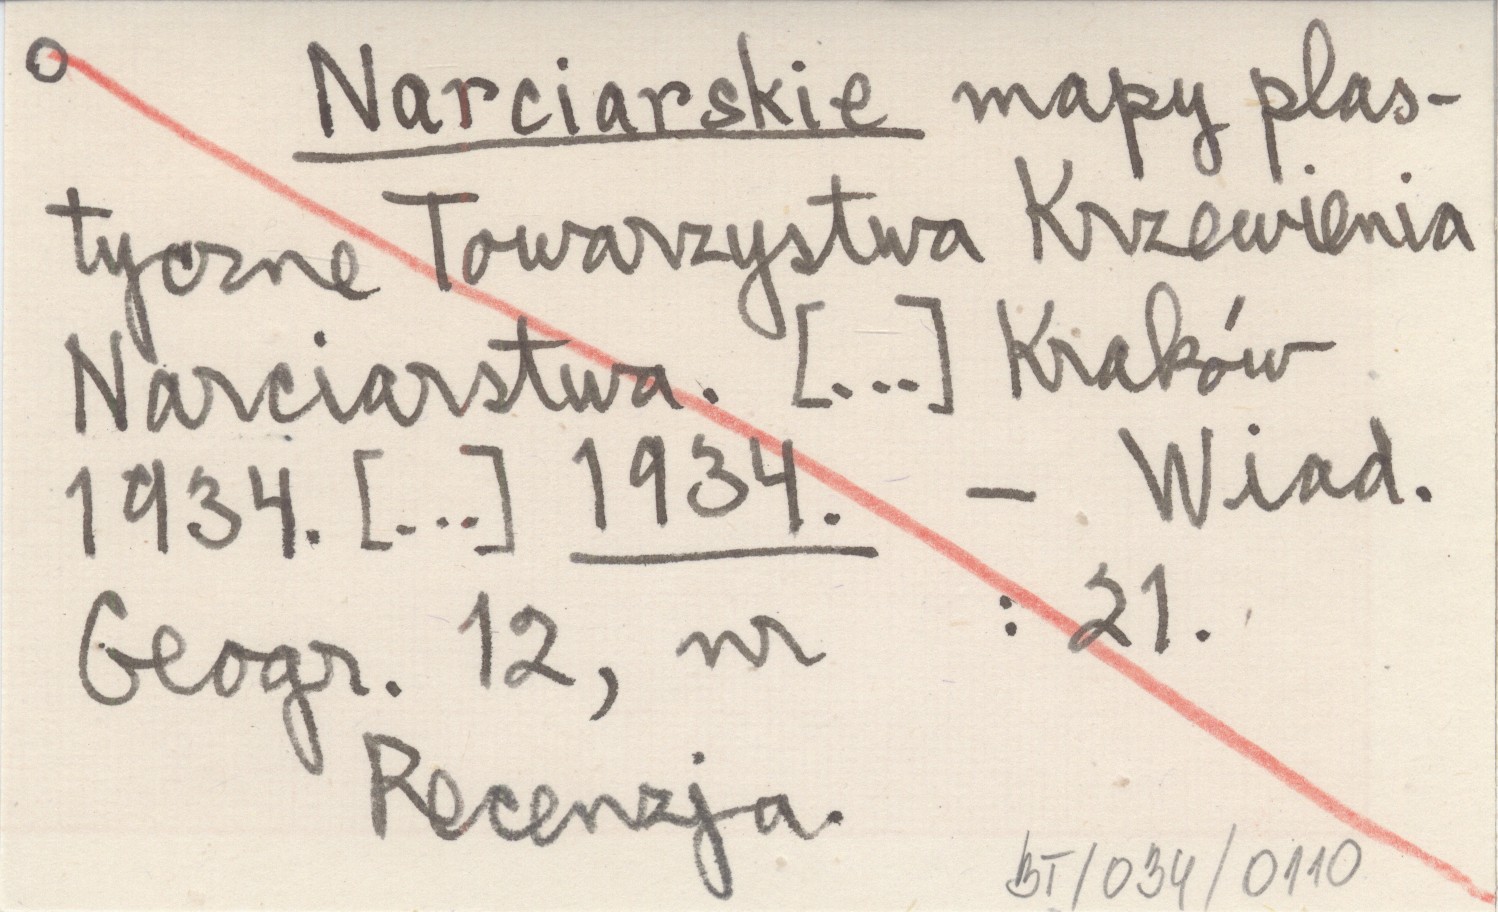 o Narciarskie mapy plas-
tyczne Towarzystwa Krzewienia
Narciarstwa. [...] Kraków
1934. [...] 1934. – Wiad.
Geogr. 12, nr : 21.
Recenzja.
BT/034/0110